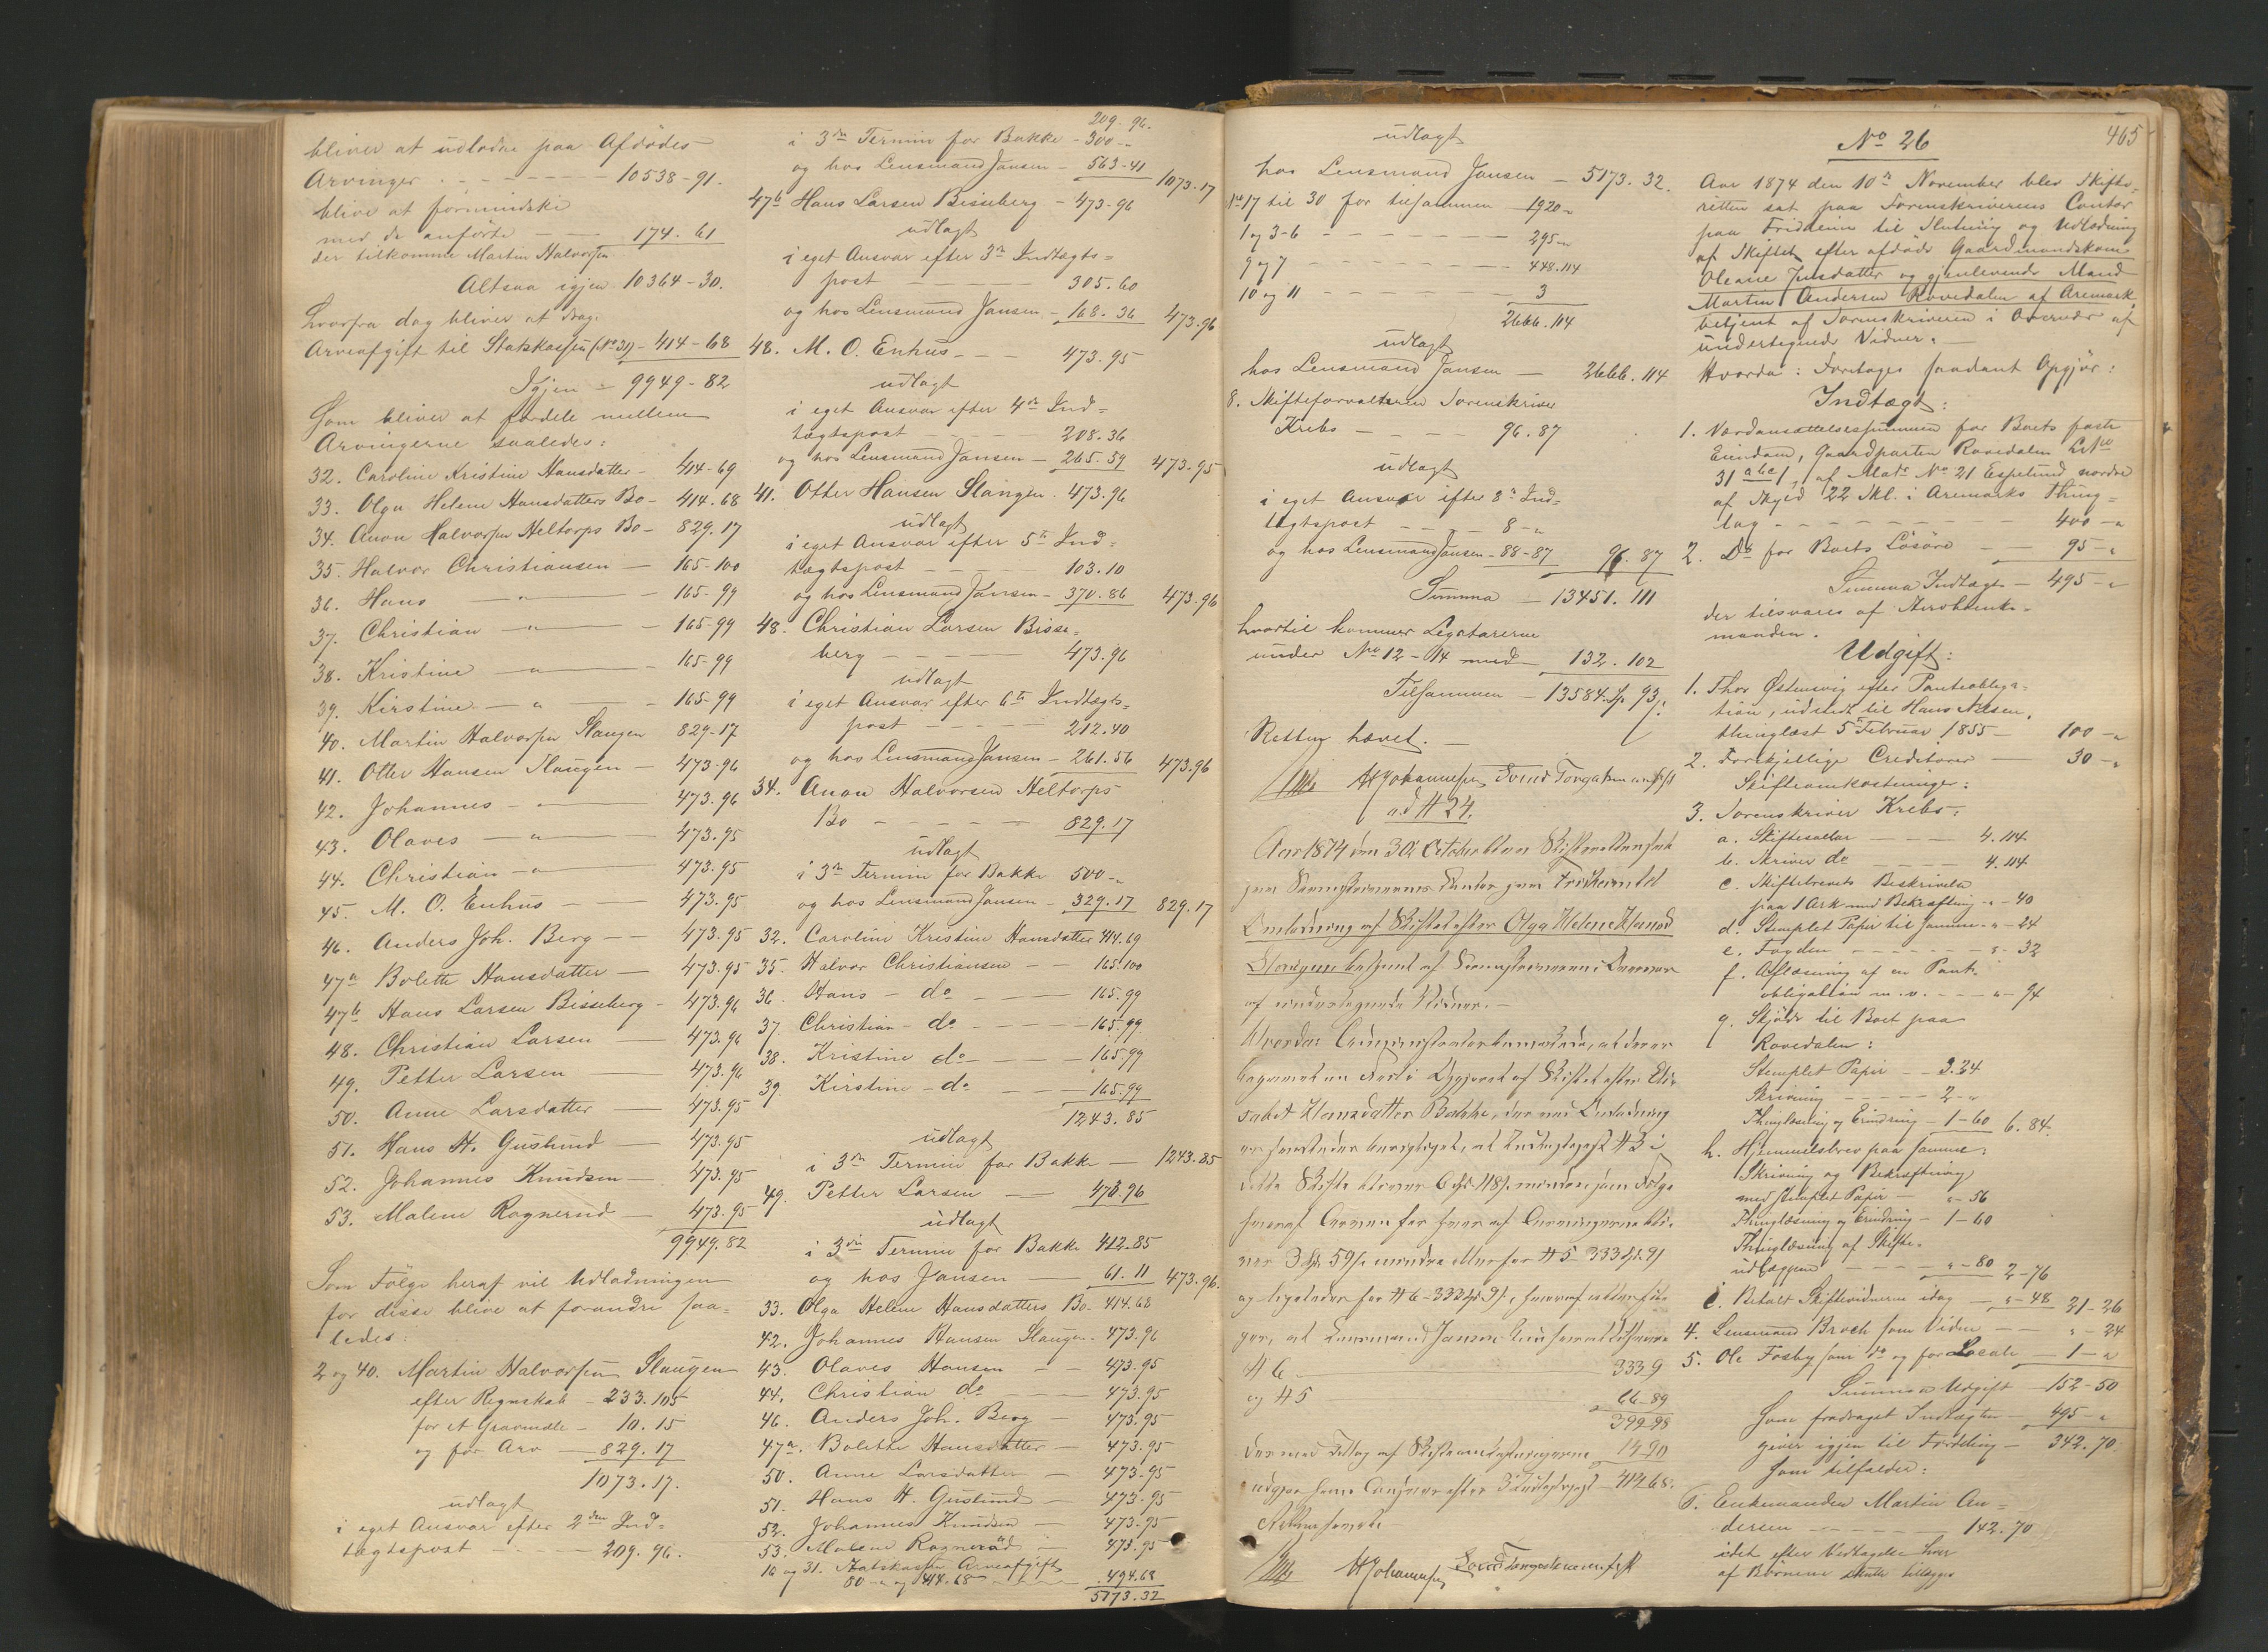 bliver at udlodne paa Afdødes
Arvinger - - - - - 10538-91.
blive at formindske
med de anførte - - 174. 61
der tilkomme Martin Halvorsen
Altsaa igjen 10364-30.
hvorfra dog bliver at drag.
Arveafgift til Statskassen (No 31) - 414-68
Igjen - 9949-82
Som bliver at fordele mellem
Arvingerne saaledes:
32. Caroline Kristine Hansdatter - 414-69
33. Olga Helene Hansdatters Bo - 414.68
34. Anon Halvorsen Heltorps Bo - 829.17
35. Halvor Christiansen - 165-100
36. Hans - " - 165-99
37. Christian - " - 165-99
38. Kristine - " - 165-99
39. Kirstine - " - 165-99
40. Martin Halvorsen Slangen 829-17
41. Otter Hansen Slangen - 473-96
42. Johannes - " - 473.96
43. Olaves - " - 473.95
44. Christian - " - 473.95
45. M. O. Enhus - - 473.95
46. Anders Joh. Berg - - 473.95
47a Bolette Hansdatter - 473.95
47b Hans Larsen Bisseberg - 473.96
48. Christian Larsen - 473.96
49. Petter Larsen - 473.96
50. Anne Larsdatter - 473.95
51. Hans H. Guslund - 473.95
52. Johannes Knudsen - 473.95
53. Malene Ragnerud - 473.95
9949.82
Som Følge heraf vil Udlodningen
for disse blive at forandre saa=
ledes:
2 og 40. Martin Halvorsen Slangen
efter Regnskab - 233.105
for et Gravmæle - 10.15
og for Arv - 829.17
1073.17.
udlagt
i eget Ansvar efter 2den Ind=
tægtspost - - - 209.96.
209.96.
i 3die Termin for Bakke - 300-"
og hos Lensmand Jansen - 563-41 1073.17
47b Hans Larsen Bisseberg - 473-96
udlagt
i eget Ansvar efter 3die Indtægts=
post - - - 305.60
og hos Lensmand Jansen - 168.36 473.96
48. M. O. Enhus - - - 473.95
udlagt
i eget Ansvar efter 4de Ind=
tægtspost - - - 208.36
og hos Lensmand Jansen - 265.59 473.95
41. Otter Hansen Slangen. 473.96
udlagt
i eget Ansvar efter 5te Ind=
tægtspost - - - 103.10
og hos Lensmand Jansen - 370.86 473.96
48. Christian Larsen Bisse=
berg - - - 473.96
udlagt
i eget Ansvar efter 6te Indtægts=
post - - - 212.40
og hos Lensmand Jansen - 261.56 473.96
34. Anon Halvorsen Heltorps
Bo - - - 829.17
udlagt
i 3die Termin for Bakke 500-"
og hos Lensmand Jansen - 329.17 829.17
32. Caroline Kristine Hansdatter 414.69
35. Halvor Christiansen - - 165.100
36. Hans - do - - 165.99
37. Christian - do - - 165.99
38. Kristine do - - 165.99
39. Kirstine - do - 165.99
1243.85
udlagt
i 3die Termin for Bakke - 1243.85
49. Petter Larsen - 473.96
udlagt
i 3die Termin for Bakke 412.85
og hos Jansen - 61.11 473.96.
33. Olga Helene Hansdatters Bo. 414.68
42. Johannes Hansen Slangen. 473.96
43. Olaves Hansen - - 473.95
44. Christian do - - 473.95
46. Anders Joh. Berg - 473.95
47a. Bolette Hansdatter - 473.95
50. Anne Larsdatter - 473-95
51. Hans H. Guslund - 473.95
52. Johannes Knudsen - 473.95
53. Malene Ragnerud - 473.95
16 og 31. Statskassen Arveafgift
80-" og 414.68 - - 494.68
5173.32
udlagt
hos Lensmand Jansen - 5173.32.
No 17 til 30 for tilsammen 1920-"
1 og 3-6 - - - 295-"
9 og 7 - - - 448.114
10 og 11 - - - 3
2666.114
udlagt
hos Lensmand Jansen - 2666.114
8. Skifteforvalteren Sorenskriver
Krebs - - - 96.87
udlagt
i eget Ansvar efter 8de Ind=
tægtspost - - - 8-"
og hos Lensmand Jansen - 88-87 96.87
Summa - 13451.111
hvortil kommer Legatarerne
under No 12-14 med - 132.102
Tilsammen - 13584 Sp 93 s.
Retten hævet. -
H Johannesen
ad # 24.
Aar 1874 den 30te October blev Skifteretten sat
paa Sorenskriverens Contor paa Fridheim til
Omlodning af Skiftet efter Olga Helene Hansd
Slangen betjent af Sorenskriveren i Overvær
af undertegnede Vidner. -
Hvorda: bemærkede, at der er
begaaet en Feil i Opgjøret af Skiftet efter Eli=
sabet Hansdatter Bakke, der ved Omlodning
er saaledes berigtiget, at Indtægtspost # 3 i
dette Skifte bliver 6 Spd 118 s. mindre som Følge
hvoraf Arven for hver af Arvingerne bli=
ver 3 Spd. 59 s. mindre
og ligeledes for # 6 - 333 Spd. 9 s, hvoraf atter føl=
ger, at Lensmand Jansen
# 6 - 333 9
og # 5 66-89
399-98
der med Tillæg af Skifteomkostningerne 14-90
udgjør hans Ansvar efter 3 Indtægtspost - 414 68.
Retten hævet
H Johannesen
465
No 26
Aar 1874 den 10de November blev Skifte=
retten sat paa Sorenskriverens Contor
paa Fridheim til Slutning og Udlodning
af Skiftet efter afdøde Gaardmandskone
Oleane Jensdatter og gjenlevende Mand
Martin Andersen Kovedalen af Aremark,
betjent af Sorenskriveren i Overvær af
undertegnede Vidner. -
Hvorda: Foretoges saadant Opgjør:
Indtægt:
1. Værdiansættelsessummen for Boets faste
Eiendom, Gaardparten Kovedalen LNo
31 abc 1, af Matr No 21 Espelund nordre
af Skyld 22 Skl. i Aremarks Thing=
lag - - - 400-"
2. Do for Boets Løsøre - - 95-"
Summa Indtægt - 495-"
der tilsvares af Arvebenke=
manden.
Udgift:
1. Thor Østensvig efter Panteobliga=
tion, udstedt til Hans Nilsen,
thinglæst 5te Februar 1855 - 100-"
2. Forskjellige Creditorer - 30-"
Skifteomkostninger:
3. Sorenskriver Krebs:
a. Skiftesallar - - 4.114
b. Skriver do - - 4.114
c. Skiftebrevets Beskrivelse
paa 1 Ark med Bekræftning - " - 40
d. Stemplet Papir til samme - " - 24
e. Fogden - - - " - 32
f. Aflæsning af en Pant=
obligation m. v. - - " - 94
g. Skjøde til Boet paa
Kovedalen:
Stemplet Papir - - 3.24
Skrivning - - 2-"
Thinglæsning og Erindring - 1-60 6.84.
h. Hjemmelsbrev paa samme:
Skrivning og Bekræftning
med stemplet Papir - " - 56
Thinglæsning og Erindring - 1-60
Thinglæsning af Skifte=
udlæggene - - " - 80 2-76
i. Betalt Skiftevidnerne idag - " - 48 21-26
4. Lensmand Broch som Vidne - " - 24
5. Ole Fosby som do og for Locale - 1-"
Summa Udgift - 152-50
Som fradraget Indtægten - 495-"
giver igjen til Fordeling - 342.70
som tilfalder:
6. Enkemanden Martin An=
dersen - - - 142.70
idet efter Vedtagelse hver
af Børnene skulle tillægges